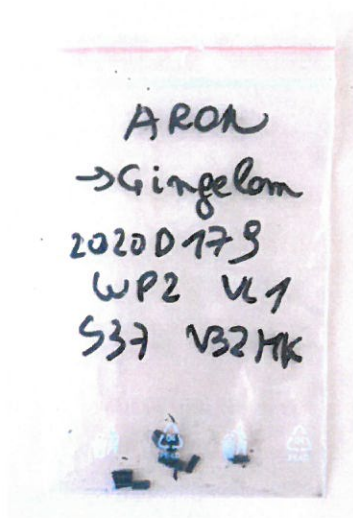 ARON
→Gingelom
2020D179
WP2 VL1
S37 V32HK